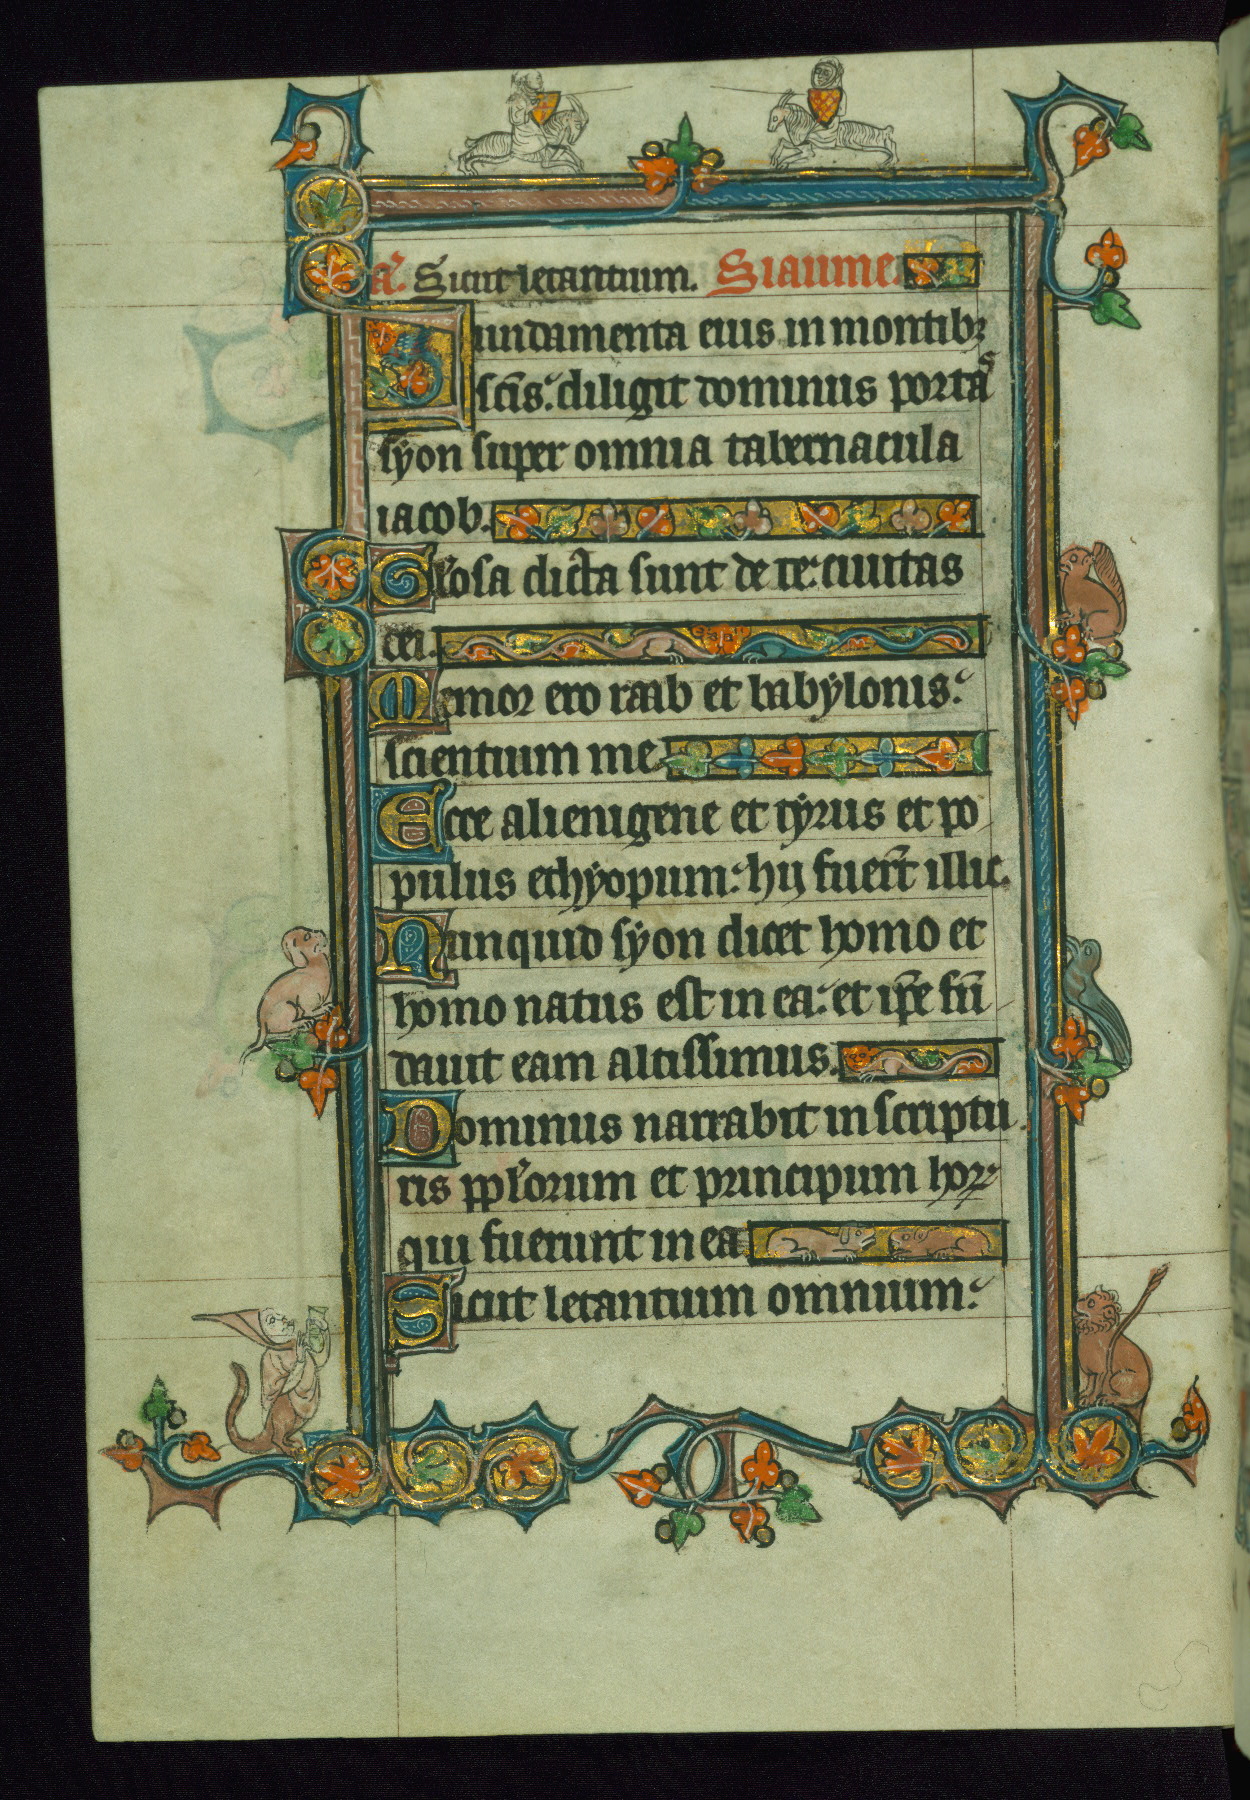 a'. Sicut letantium. Siaume.
Fundamenta eius in montib;
sc̄is: diligit dominus portas
syon super omnia tabernacula
iacob.
Gl'osa dicta sunt de te: ciuitas
dei.
Memor ero raab et babylonis:
scientium me
Ecce alienigene et tyrus et po
pulus ethyopum: hij fuer̄t illic.
Nunquid syon dicet homo et
homo natus est in ea: et ip̄e fū
dauit eam altissimus.
Dominus narrabit in scriptu
ris pp̄lorum et principum hoꝝ
qui fuerunt in ea
Sicut letantium omnium: